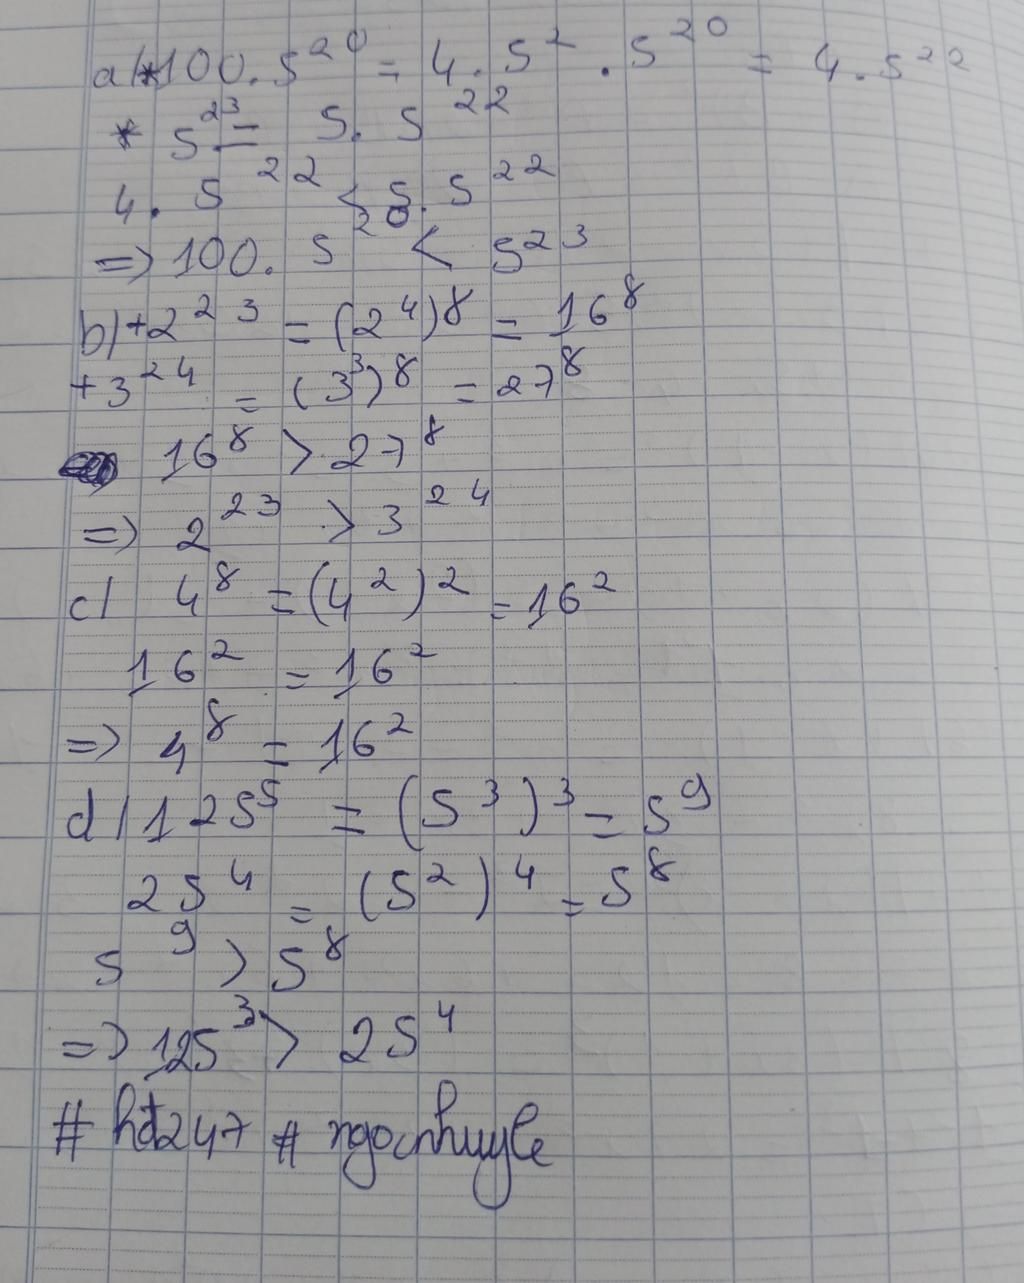 a/*100.5²⁰ = 4.5².5²⁰ = 4.5²²
* 5²³ = 5.5²²
4.5²² < 5.5²²
=> 100.5²⁰ < 5²³
b/+2²³ = (2⁴)⁸ = 16⁸
+3²⁴ = (3³)⁸ = 27⁸
16⁸ > 27⁸
=> 2²³ > 3²⁴
c/ 4⁸ = (4²)² = 16²
16² = 16²
=> 4⁸ = 16²
d/125⁵ = (5³)³ = 5⁹
25⁴ = (5²)⁴ = 5⁸
5⁹ > 5⁸
=> 125³ > 25⁴
# hđ247 # ngocnhuyle